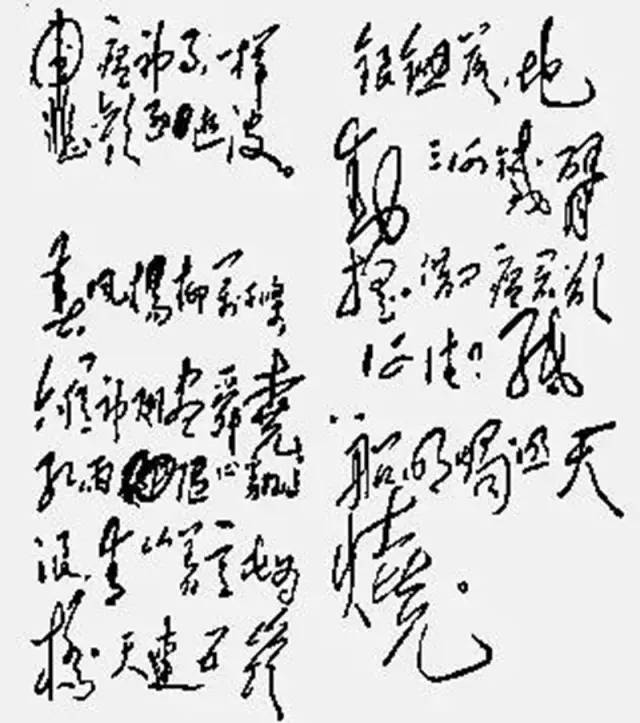 瘟神事，一样
悲欢逐逝波。
春风杨柳万千条
六亿神州尽舜尧
红雨随心翻作
浪，青山着意化为
桥 天连五岭
银锄落，地
动三河铁臂
摇。借问瘟君欲
何往？纸
船明烛照天
烧。